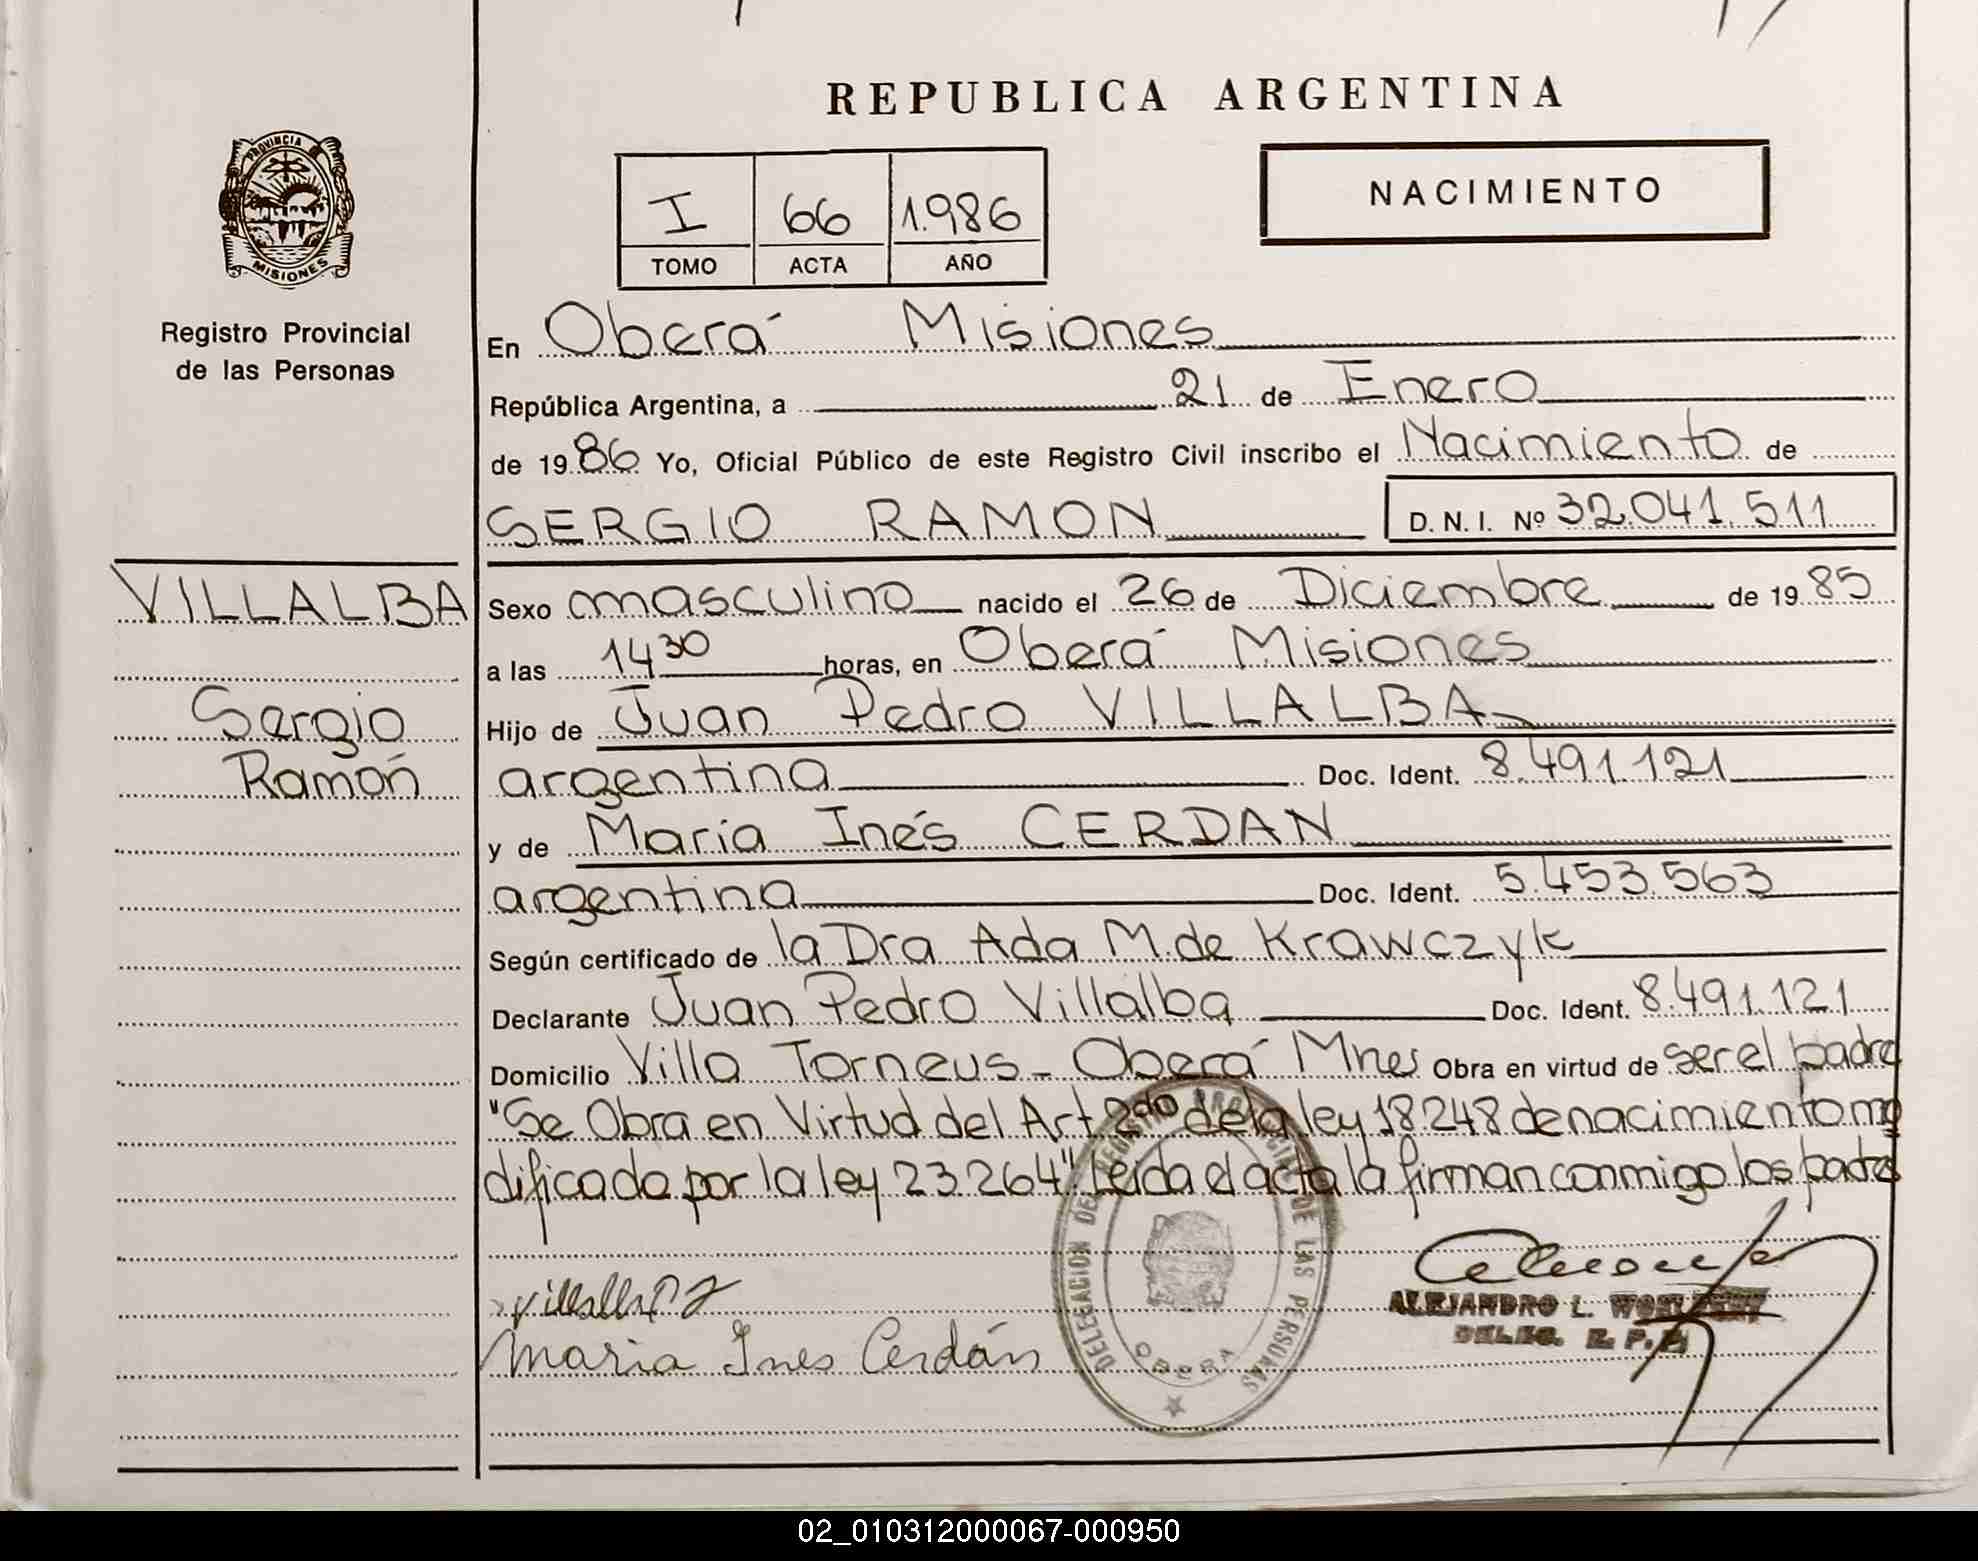 REPUBLICA ARGENTINA
PROVINCIA
MISIONES
Registro Provincial
de las Personas
I 66 1.986
TOMO ACTA AÑO
NACIMIENTO
En Oberá Misiones
República Argentina, a 21 de Enero
de 1986 Yo, Oficial Público de este Registro Civil inscribo el Nacimiento de
SERGIO RAMON D. N. I. Nº 32.041.511
VILLALBA
Sergio
Ramón
Sexo masculino nacido el 26 de Diciembre de 1985
a las 14 30 horas, en Oberá Misiones
Hijo de Juan Pedro VILLALBA
argentina Doc. Ident. 8.491.121
y de Maria Inés CERDAN
argentina Doc. Ident. 5.453.563
Según certificado de la Dra Ada M. de Krawczyk
Declarante Juan Pedro Villalba Doc. Ident. 8.491.121
Domicilio Villa Torneus - Oberá Mnes Obra en virtud de ser el padre
"Se Obra en Virtud del Art 2do de la ley 18.248 de nacimiento mo
dificado por la ley 23.264" Leida el acta la firman conmigo los padres
Maria Ines Cerdán
DELEGACION DEL REGISTRO PROVINCIAL DE LAS PERSONAS
OBERA
ALEJANDRO L.
DELEG. R. P. P.
02_010312000067-000950